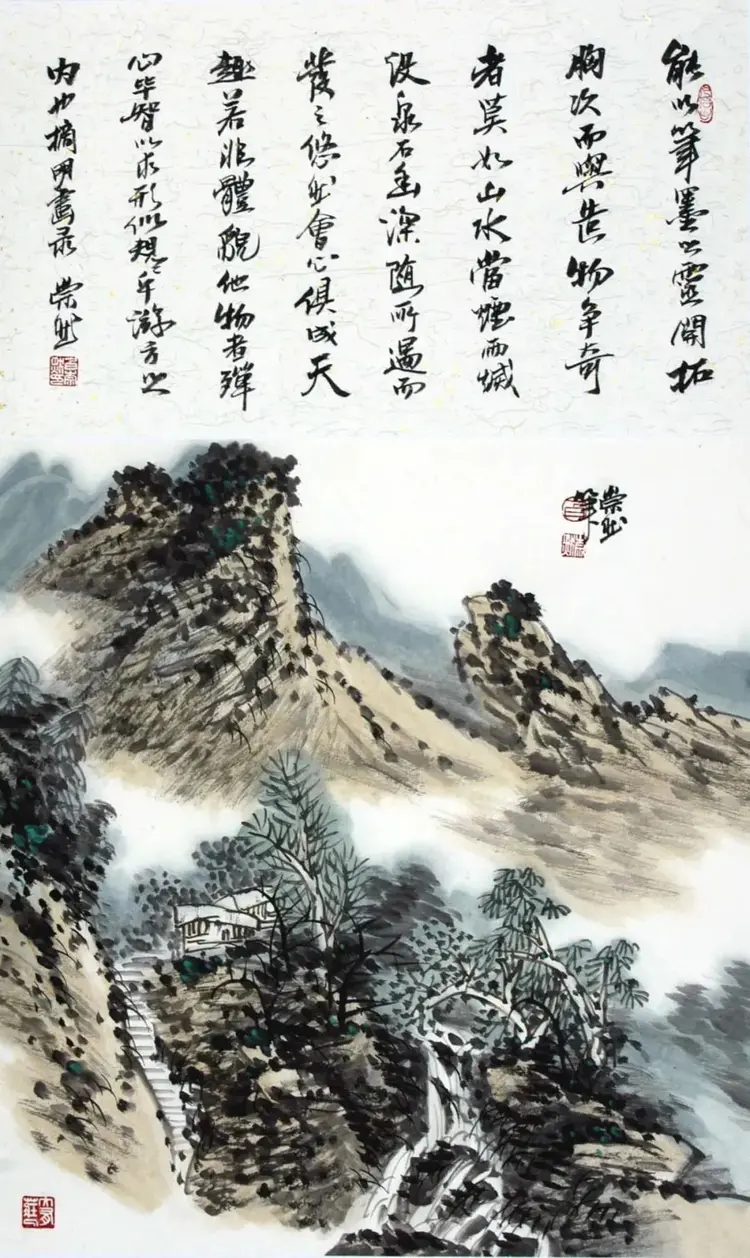 能以筆墨之靈開拓
胸次而與造物争奇
者莫如山水當煙雨滅
没泉石幽深随所遇而
發之悠然會心俱成天
趣若非體貌他物者殫
心毕智以求形似規々乎游方之
内也摘明畫录 崇然
崇然
筆